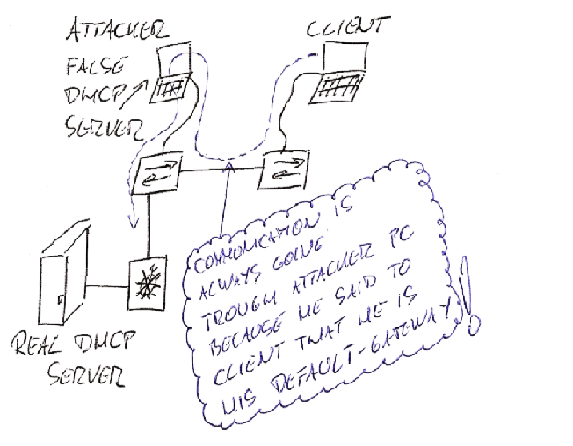 ATTACKER
FALSE
DHCP
SERVER
CLIENT
REAL DHCP
SERVER
COMMUNICATION IS
ALWAYS GOING
TROUGH ATTACKER PC
BECAUSE HE SAID TO
CLIENT THAT HE IS
HIS DEFAULT-GATEWAY!